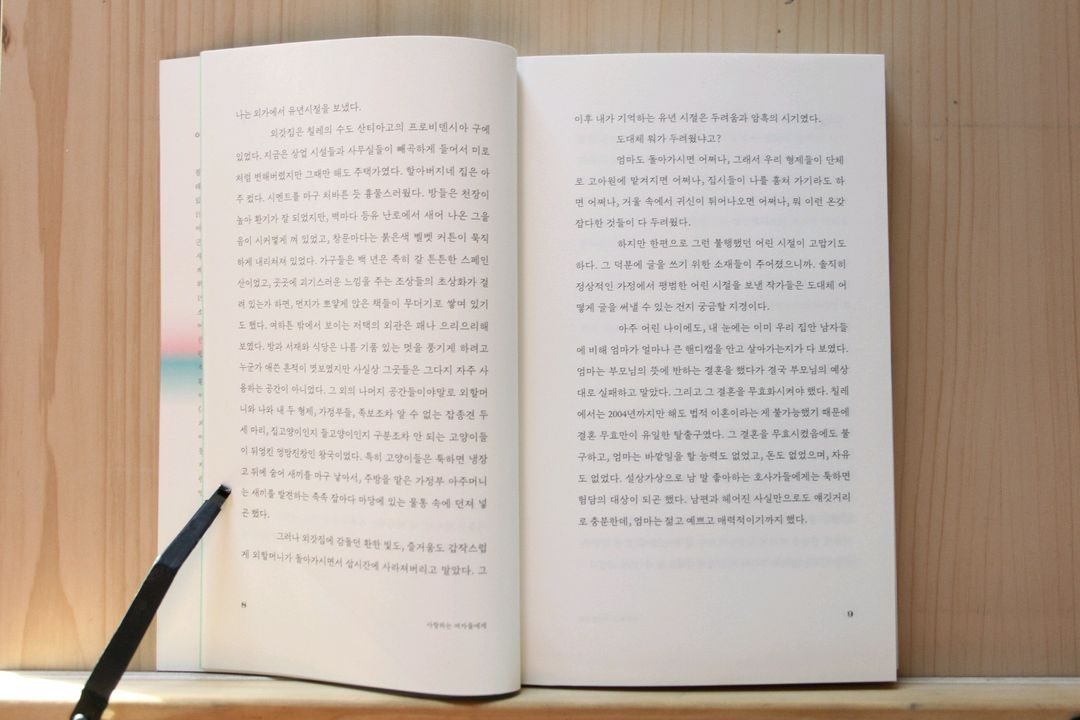 나는 외가에서 유년시절을 보냈다.
외갓집은 칠레의 수도 산티아고의 프로비덴시아 구에
있었다. 지금은 상업 시설들과 사무실들이 빼곡하게 들어서 미로
처럼 변해버렸지만 그때만 해도 주택가였다. 할아버지네 집은 아
주 컸다. 시멘트를 마구 처바른 듯 흉물스러웠다. 방들은 천장이
높아 환기가 잘 되었지만, 벽마다 등유 난로에서 새어 나온 그을
음이 시커멓게 껴 있었고, 창문마다는 붉은색 벨벳 커튼이 묵직
하게 내리쳐져 있었다. 가구들은 백 년은 족히 갈 튼튼한 스페인
산이었고, 곳곳에 괴기스러운 느낌을 주는 조상들의 초상화가 걸
려 있는가 하면, 먼지가 뽀얗게 앉은 책들이 무더기로 쌓여 있기
도 했다. 여하튼 밖에서 보이는 저택의 외관은 꽤나 으리으리해
보였다. 방과 서재와 식당은 나름 기품 있는 멋을 풍기게 하려고
누군가 애쓴 흔적이 엿보였지만 사실상 그곳들은 그다지 자주 사
용하는 공간이 아니었다. 그 외의 나머지 공간들이야말로 외할머
니와 나와 내 두 형제, 가정부들, 족보조차 알 수 없는 잡종견 두
세 마리, 집고양이인지 들고양이인지 구분조차 안 되는 고양이들
이 뒤엉킨 엉망진창인 왕국이었다. 특히 고양이들은 툭하면 냉장
고 뒤에 숨어 새끼를 마구 낳아서, 주방을 맡은 가정부 아주머니
는 새끼를 발견하는 족족 잡아다 마당에 있는 물통 속에 던져 넣
곤 했다.
그러나 외갓집에 감돌던 환한 빛도, 즐거움도 갑작스럽
게 외할머니가 돌아가시면서 삽시간에 사라져버리고 말았다. 그
8
사랑하는 여자들에게
이후 내가 기억하는 유년 시절은 두려움과 암흑의 시기였다.
도대체 뭐가 두려웠냐고?
엄마도 돌아가시면 어쩌나, 그래서 우리 형제들이 단체
로 고아원에 맡겨지면 어쩌나, 집시들이 나를 훔쳐 가기라도 하
면 어쩌나, 거울 속에서 귀신이 튀어나오면 어쩌나, 뭐 이런 온갖
잡다한 것들이 다 두려웠다.
하지만 한편으로 그런 불행했던 어린 시절이 고맙기도
하다. 그 덕분에 글을 쓰기 위한 소재들이 주어졌으니까. 솔직히
정상적인 가정에서 평범한 어린 시절을 보낸 작가들은 도대체 어
떻게 글을 써낼 수 있는 건지 궁금할 지경이다.
아주 어린 나이에도, 내 눈에는 이미 우리 집안 남자들
에 비해 엄마가 얼마나 큰 핸디캡을 안고 살아가는지가 다 보였다.
엄마는 부모님의 뜻에 반하는 결혼을 했다가 결국 부모님의 예상
대로 실패하고 말았다. 그리고 그 결혼을 무효화시켜야 했다. 칠레
에서는 2004년까지만 해도 법적 이혼이라는 게 불가능했기 때문에
결혼 무효만이 유일한 탈출구였다. 그 결혼을 무효시켰음에도 불
구하고, 엄마는 바깥일을 할 능력도 없었고, 돈도 없었으며, 자유
도 없었다. 설상가상으로 남 말 좋아하는 호사가들에게는 툭하면
험담의 대상이 되곤 했다. 남편과 헤어진 사실만으로도 얘깃거리
로 충분한데, 엄마는 젊고 예쁘고 매력적이기까지 했다.
9